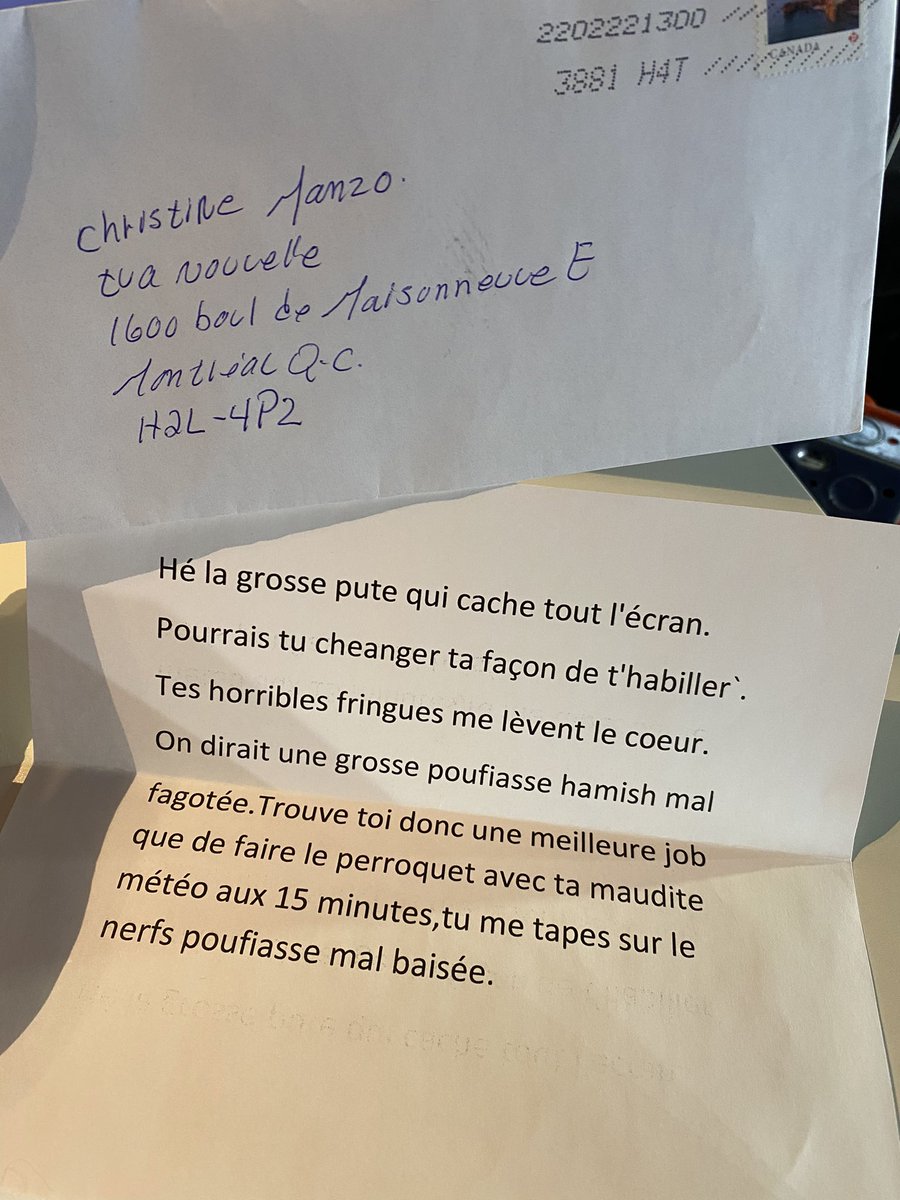 2202221300
3881 H4T
CANADA
Christine Manzo.
tva nouvelle
1600 boul de Maisonneuve E
Montréal Q.C.
H2L-4P2
Hé la grosse pute qui cache tout l'écran.
Pourrais tu cheanger ta façon de t'habiller`.
Tes horribles fringues me lèvent le coeur.
On dirait une grosse poufiasse hamish mal
fagotée.Trouve toi donc une meilleure job
que de faire le perroquet avec ta maudite
météo aux 15 minutes,tu me tapes sur le
nerfs poufiasse mal baisée.